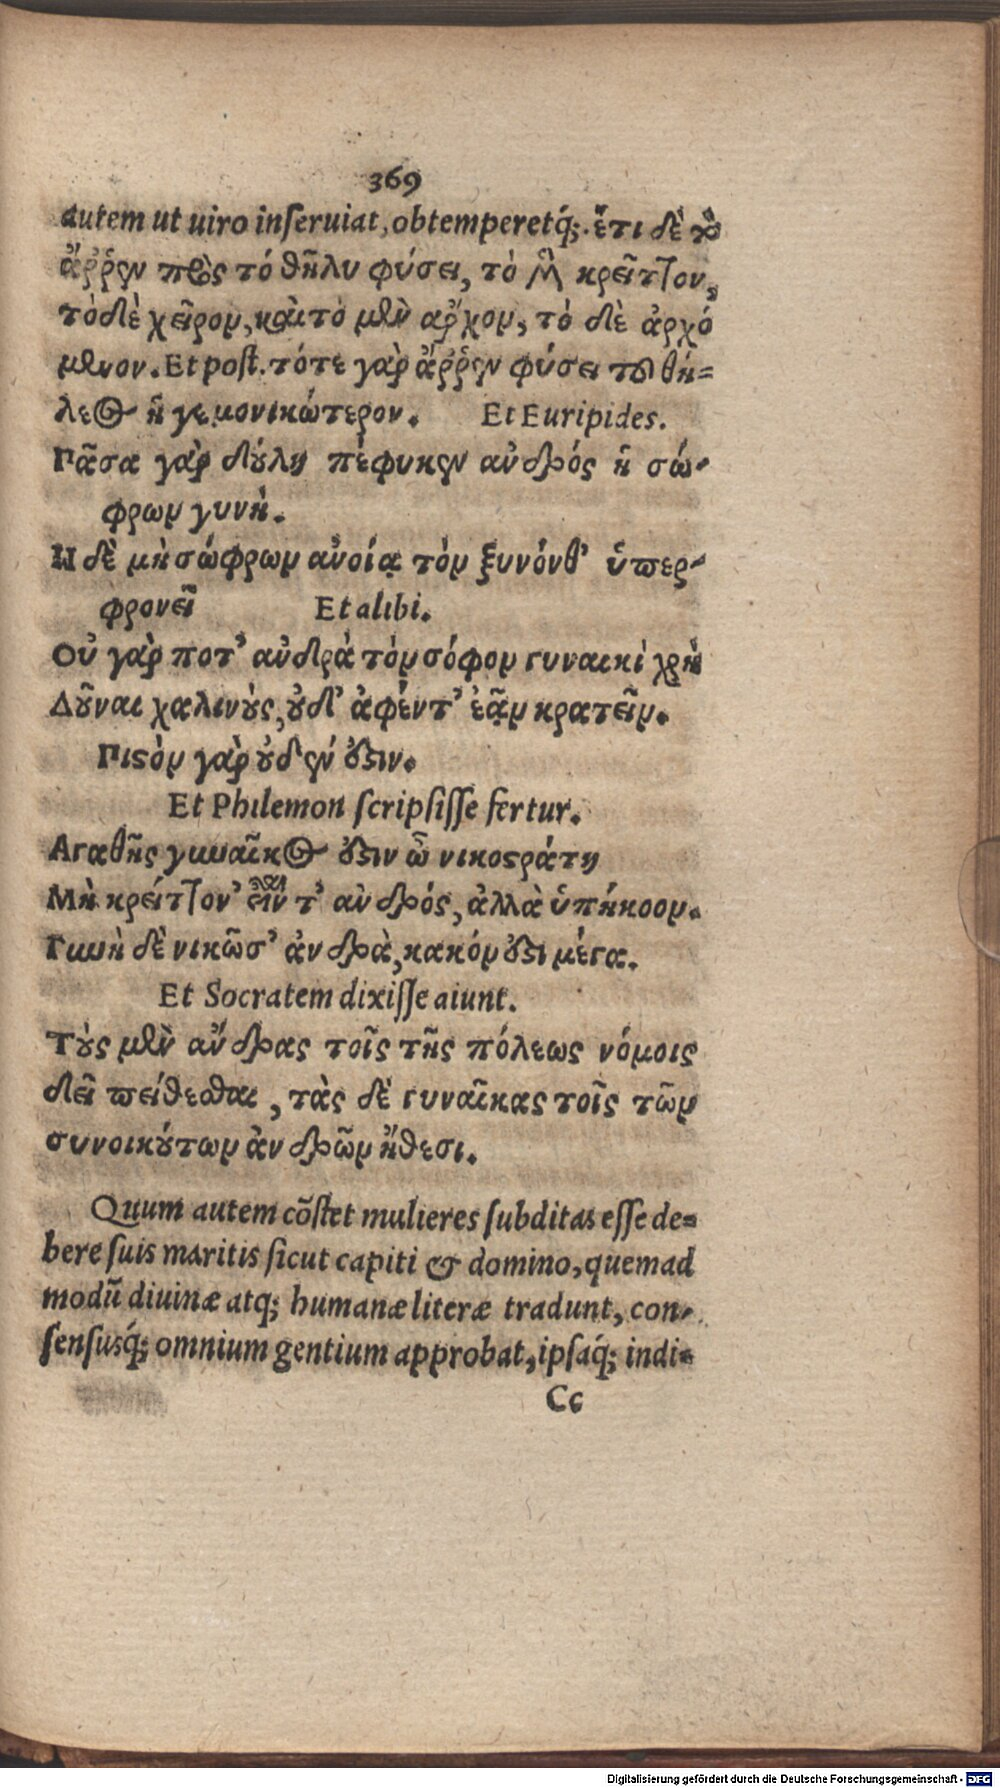 369
autem ut uiro inſeruiat, obtemperetq́;. ἔτι δὲ τὸ
ἄῤῥεν πρὸς τό θῆλυ φύσει, τὸ μὲν κρεῖττον,
τὸ δὲ χεῖρον, καὶ τὸ μὲν ἄρχον, τὸ δὲ ἀρχό
μενον. Et poſt. τότε γὰρ ἄῤῥεν φύσει τοῦ θή=
λεος ἡ γεμονικώτερον. Et Euripides.
Πᾶσα γὰρ δούλη πέφυκεν ἀνδρός ἡ σώ-
φρων γυνή.
Η δὲ μὴ σώφρων ἀνοίᾳ τὸν ξυνόνθ' ὑπερ-
φρονεῖ Et alibi.
Οὐ γὰρ ποτ' ἀνδρὰ τὸν σόφον γυναικὶ χρὴ
Δοῦναι χαλινοὺς, οὐδ' ἀφέντ' ἐᾷν κρατεῖν.
Πιστὸν γὰρ οὐδέν ἐστιν.
Et Philemon ſcripſiſſe fertur.
Αγαθῆς γυναῖκος ἐστιν ὦ νικοστράτη
Μὴ κρείττον' εἶναι τ' ἀνδρός, ἀλλὰ ὑπήκοον.
Γυνὴ δὲ νικῶσ' ἀνδρὰ, κακόν ἐστι μέγα.
Et Socratem dixiſſe aiunt.
Τοὺς μὲν ἄνδρας τοῖς τῆς πόλεως νόμοις
δεῖ πείθεσθαι, τὰς δὲ γυναῖκας τοῖς τῶν
συνοικούτων ἀνδρῶν ἤθεσι.
Quum autem cõſtet mulieres ſubditas eſſe de=
bere ſuis maritis ſicut capiti & domino, quemad
modũ diuinæ atq; humanæ literæ tradunt, con-
ſenſusq́; omnium gentium approbat, ipſaq́; indi-
Cc
Digitalisierung gefördert durch die Deutsche Forschungsgemeinschaft - DFG